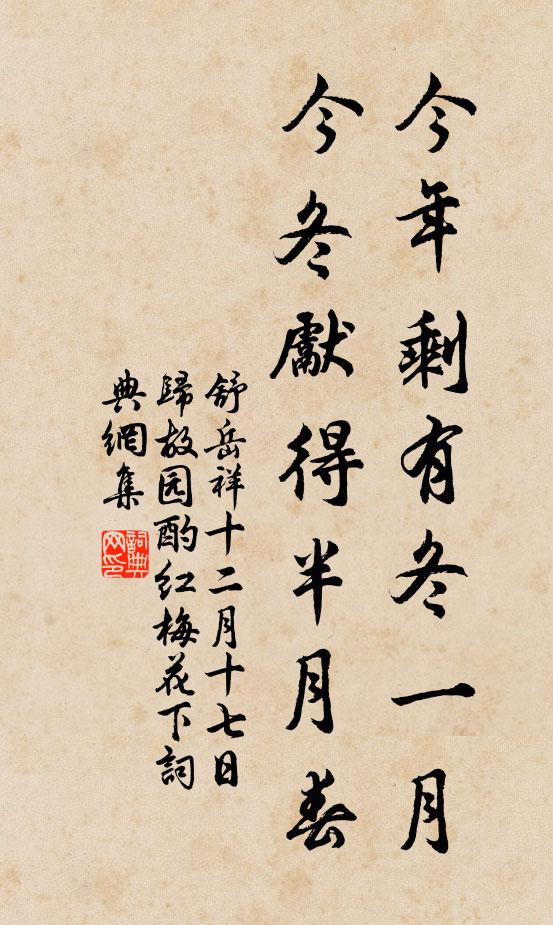 今年剩有冬一月
今冬獻得半月春
舒岳祥十二月十七日
歸故园酌红梅花下詞
典網集
詞典网印